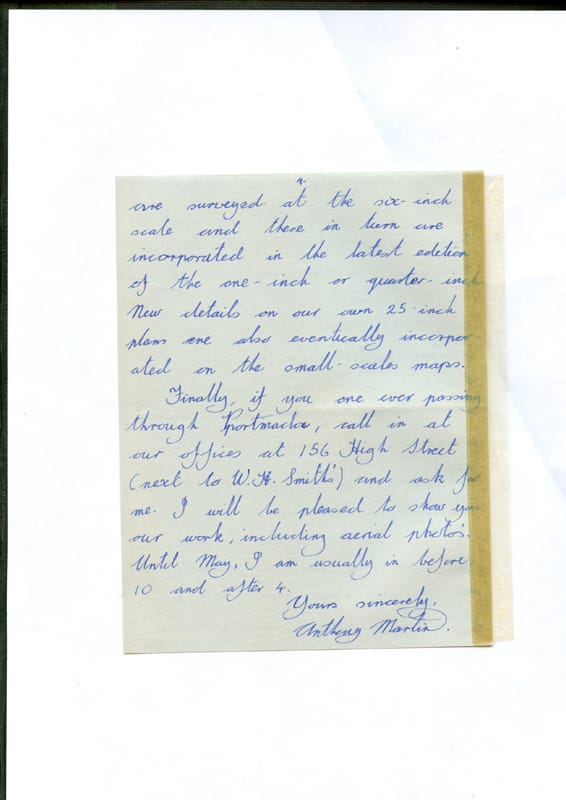 4.
are surveyed at the six-inch
scale and these in turn are
incorporated in the latest edition
of the one-inch or quarter-inch
New details on our own 25-inch
plans are also eventually incorpor-
ated on the small-scales maps.
Finally, if you are ever passing
through Portmadoc, call in at
our offices at 156 High Street
(next to W.H. Smiths') and ask for
me. I will be pleased to show you
our work, including aerial photo's.
Until May, I am usually in before
10 and after 4.
Yours sincerely,
Anthony Martin.